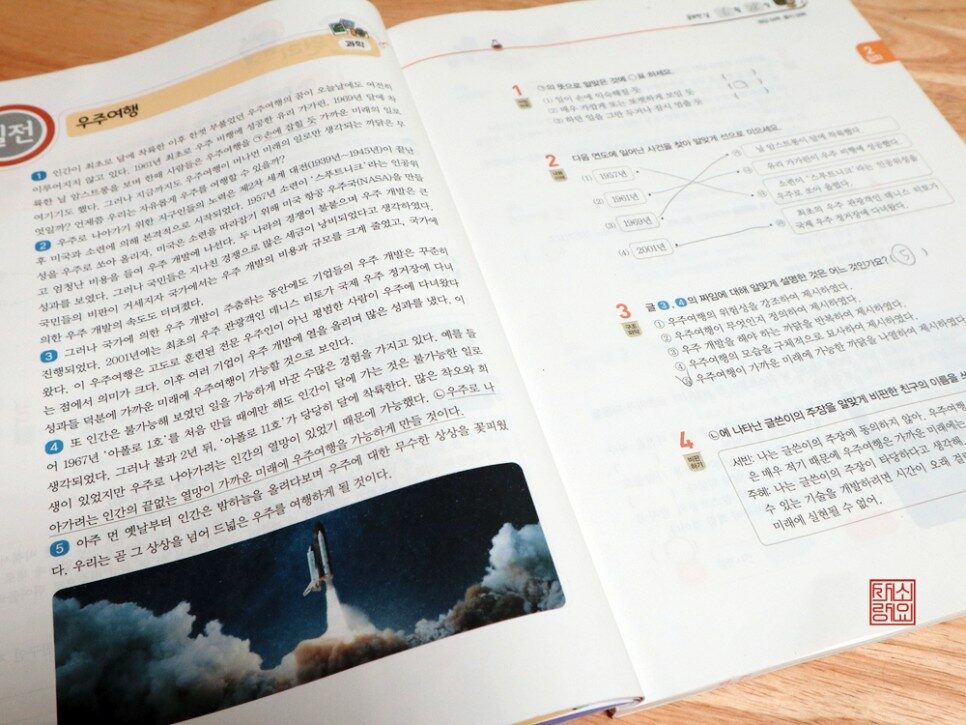 과학
실전
우주여행
1 인간이 최초로 달에 착륙한 이후 한껏 부풀었던 우주여행의 꿈이 오늘날에도 여전히
이루어지지 않고 있다. 1961년 최초로 우주 비행에 성공한 유리 가가린, 1969년 달에 착
륙한 닐 암스트롱을 보며 한때 사람들은 우주여행을 ㉠손에 잡힐 듯 가까운 미래의 일로
여기기도 했다. 그러나 지금까지도 우주여행이 머나먼 미래의 일로만 생각되는 까닭은 무
엇일까? 언제쯤 우리는 자유롭게 우주를 여행할 수 있을까?
2 우주로 나아가기 위한 지구인들의 노력은 제2차 세계 대전(1939년~1945년)이 끝난
후 미국과 소련에 의해 본격적으로 시작되었다. 1957년 소련이 ‘스푸트니크’라는 인공위
성을 우주로 쏘아 올리자, 미국은 소련을 따라잡기 위해 미국 항공 우주국(NASA)을 만들
고 엄청난 비용을 들여 우주 개발에 나선다. 두 나라의 경쟁이 불붙으며 우주 개발은 큰
성과를 보였다. 그러나 국민들은 지나친 경쟁으로 많은 세금이 낭비되었다고 생각하였다.
국민들의 비판이 거세지자 국가에서는 우주 개발의 비용과 규모를 크게 줄였고, 국가에
의한 우주 개발의 속도도 더뎌졌다.
3 그러나 국가에 의한 우주 개발이 주춤하는 동안에도 기업들의 우주 개발은 꾸준히
진행되었다. 2001년에는 최초의 우주 관광객인 데니스 티토가 국제 우주 정거장에 다녀
왔다. 이 우주여행은 고도로 훈련된 전문 우주인이 아닌 평범한 사람이 우주에 다녀왔다
는 점에서 의미가 크다. 이후 여러 기업이 우주 개발에 열을 올리며 많은 성과를 냈다. 이
성과들 덕분에 가까운 미래에 우주여행이 가능할 것으로 보인다.
4 또 인간은 불가능해 보였던 일을 가능하게 바꾼 수많은 경험을 가지고 있다. 예를 들
어 1967년 ‘아폴로 1호’를 처음 만들 때에만 해도 인간이 달에 가는 것은 불가능한 일로
생각되었다. 그러나 불과 2년 뒤, ‘아폴로 11호’가 당당히 달에 착륙한다. 많은 착오와 희
생이 있었지만 우주로 나아가려는 인간의 열망이 있었기 때문에 가능했다. ㉡우주로 나
아가려는 인간의 끝없는 열망이 가까운 미래에 우주여행을 가능하게 만들 것이다.
5 아주 먼 옛날부터 인간은 밤하늘을 올려다보며 우주에 대한 무수한 상상을 꽃피웠
다. 우리는 곧 그 상상을 넘어 드넓은 우주를 여행하게 될 것이다.
2
1 ㉠의 뜻으로 알맞은 것에 ○표 하세요.
(1) 일이 손에 익숙해질 듯 ( )
(2) 매우 가깝게 또는 또렷하게 보일 듯 (○)
(3) 하던 일을 그만 두거나 잠시 멈출 듯 ( )
2 다음 연도에 일어난 사건을 찾아 알맞게 선으로 이으세요.
(1) 1957년
(2) 1961년
(3) 1969년
(4) 2001년
㉮ 닐 암스트롱이 달에 착륙했다.
㉯ 유리 가가린이 우주 비행에 성공했다.
㉰ 소련이 ‘스푸트니크’라는 인공위성을
우주로 쏘아 올렸다.
㉱ 최초의 우주 관광객인 데니스 티토가
국제 우주 정거장에 다녀왔다.
3 글 3, 4의 짜임에 대해 알맞게 설명한 것은 어느 것인가요? ( 5 )
① 우주여행의 위험성을 강조하여 제시하였다.
② 우주여행이 무엇인지 정의하여 제시하였다.
③ 우주 개발을 해야 하는 까닭을 반복하여 제시하였다.
④ 우주여행의 모습을 구체적으로 묘사하여 제시하였다.
⑤ 우주여행이 가까운 미래에 가능한 까닭을 나열하여 제시하였다.
4 ㉡에 나타난 글쓴이의 주장을 알맞게 비판한 친구의 이름을 쓰
비판
하기
서반: 나는 글쓴이의 주장에 동의하지 않아. 우주여행
은 매우 적기 때문에 우주여행은 가까운 미래에는
주혜: 나는 글쓴이의 주장이 타당하다고 생각해.
수 있는 기술을 개발하려면 시간이 오래 걸
미래에 실현될 수 없어.